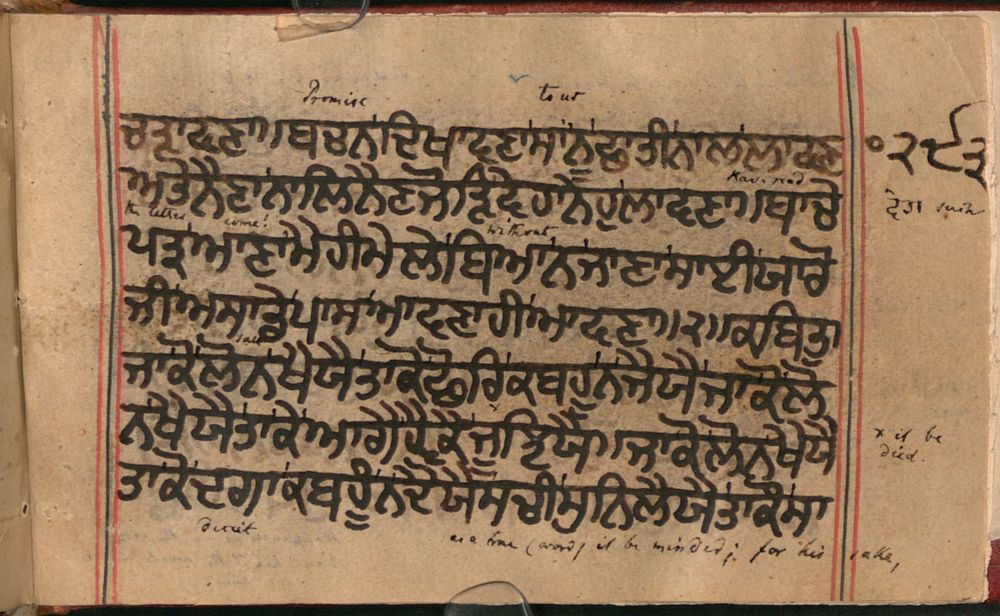 Promise to us
ਚੜਾਵਣਾ॥ਬਚਨਦਿਖਾਵਣਾਸਾਂਨੂਛਾਤੀਨਾਲਲਾਵਣ
੦੨੯੩
Have read
ਅਤੇਨੈਣਾਨਾਲਿਨੈਣਜੋੜਿਦੈਹਾਨੇਹੁਲਾਵਣਾ॥ਬਾਚੋ
such
the letter come! without
ਪੜਾਂਆਣਾਮੈਹੀਮੇਲੋਬਿਆਂਨਜਾਣਾਸਾਈਯਾਰੋ
ਜੀਅਸਾਡੇਪਾਸਆਵਣਾਹੀਆਵਣਾ॥੨॥ਕਬਿਤੁ
ਜਾਕੋਲੋਨਖੈਯੈਤਾਕੋਛੋਰਿਕਬਹੂੰਨਜੈਯੈਜਾਕੋਲੋ
ਨਖੈਯੈਤਾਕੇਆਗੈਹ੍ਵੈਕੈਜੁਝਿਯੈ॥ਜਾਕੋਲੋਨਖੈਯੈ
x it be died.
ਤਾਕੋਦਗਾਕਬਹੂੰਨਦੈਯੈਸਚੀਸੁਨਿਲੈਯੈਤਾਕੈਸਾ
deceit
as a true (word) it be minded; for his sake,